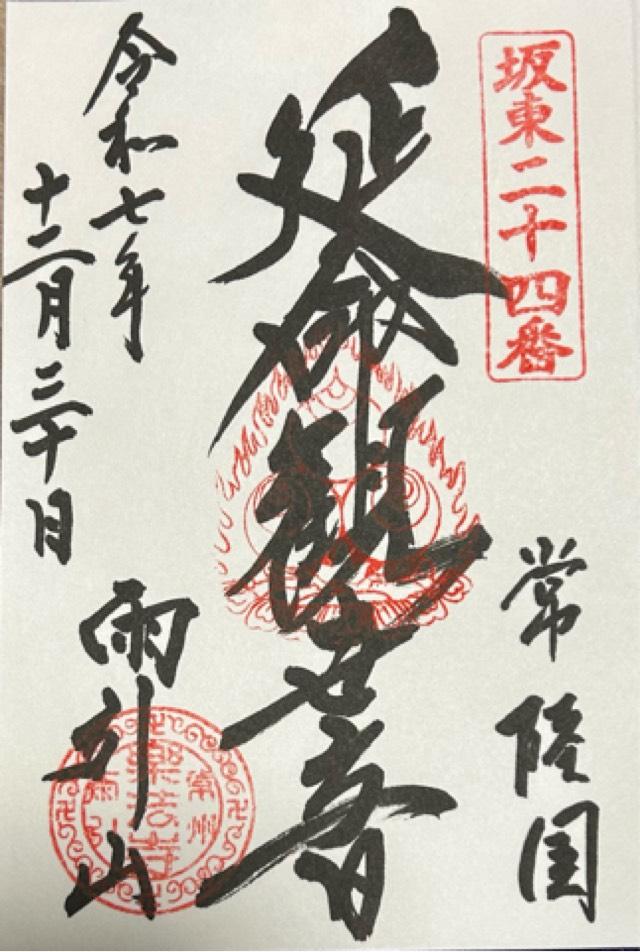 坂東二十四番
常陸国
延命観世音
雨引山
令和七年
十二月三十日
常州